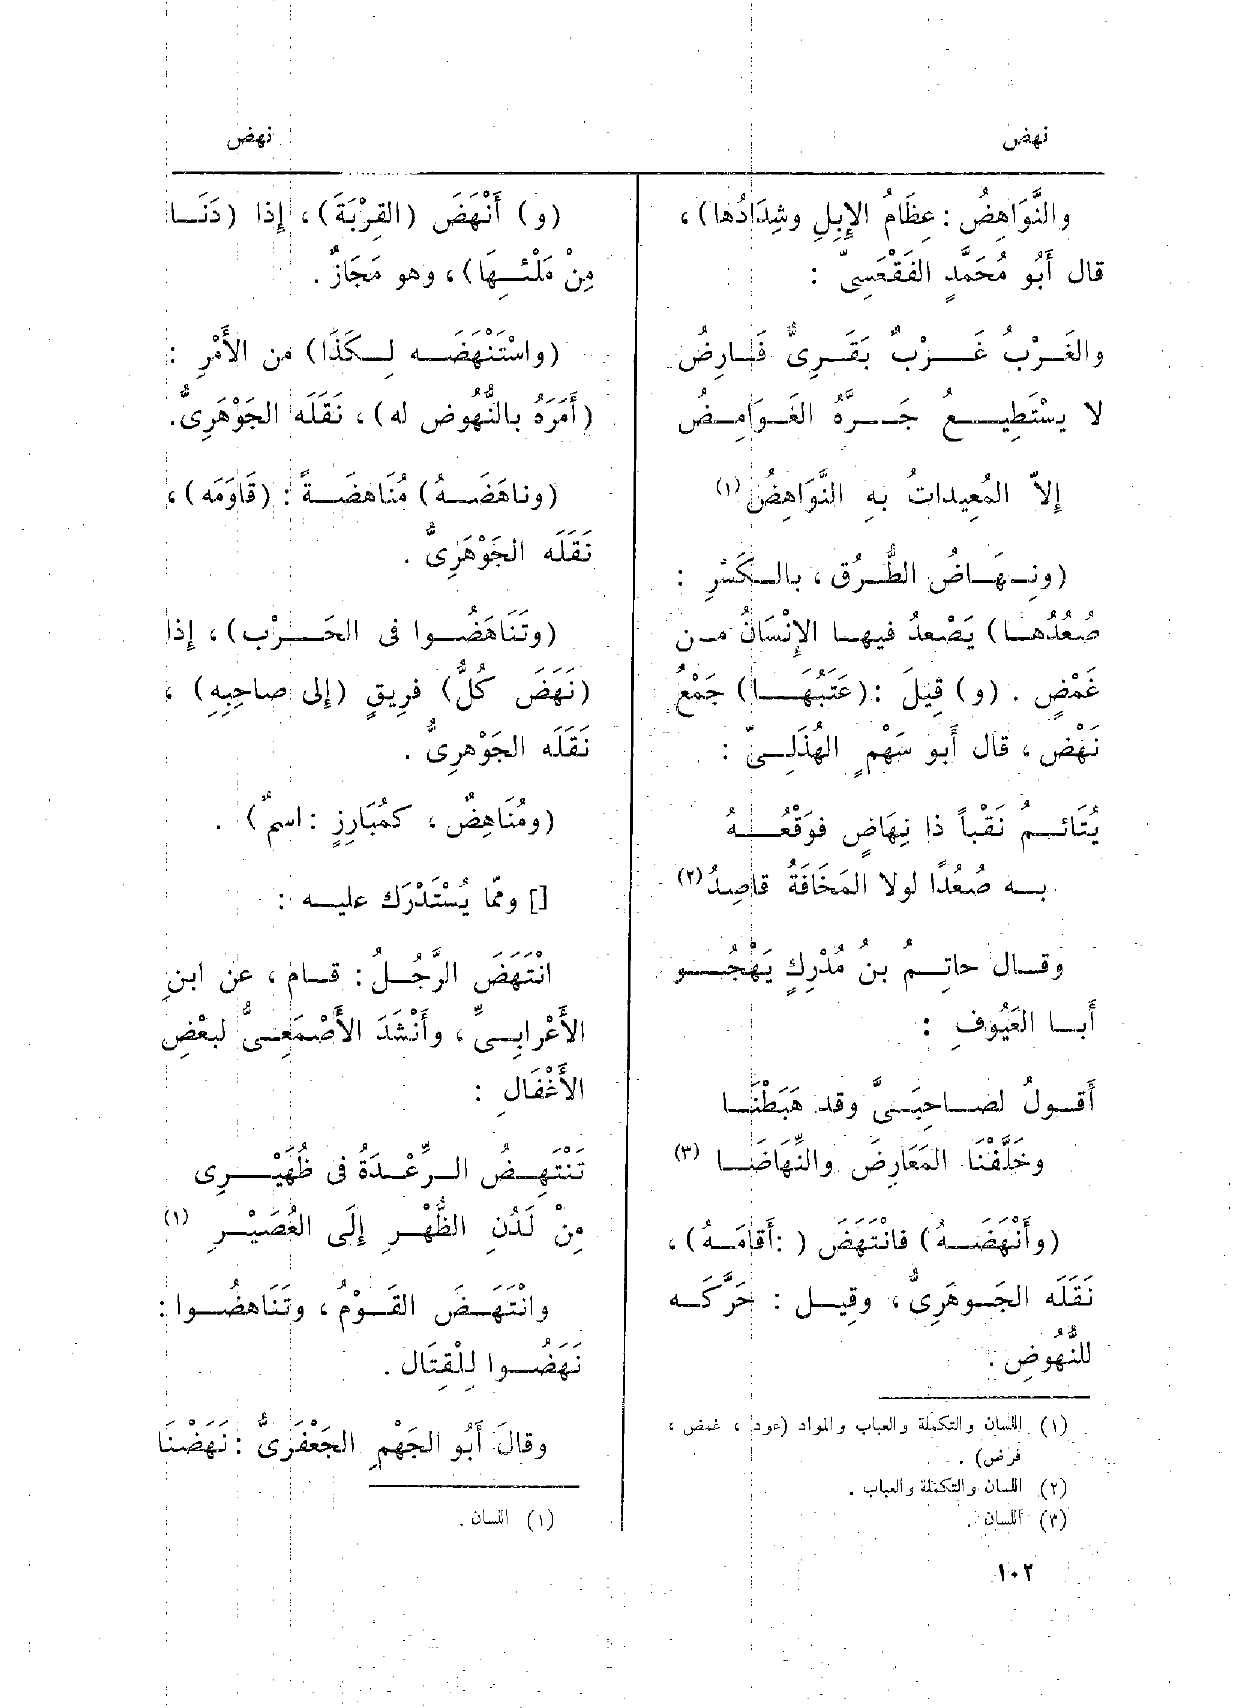 نهض
نهض
والنَّوَاهِضُ : عِظَامُ الإِبِلِ وشِدَادُها) ،
قال أَبُو مُحَمَّدٍ الفَقْعَسِىّ :
والغَرْبُ غَرْبٌ بَقَرِىٌّ فَارِضُ
لا يسْتَطِيعُ جَرَّهُ الغَوَامِضُ
إِلاّ المُعِيداتُ بهِ النَّوَاهِضُ (١)
(ونِهَاضُ الطُّرُق ، بالكَسْرِ :
صُعُدُها) يَصْعدُ فيها الإِنْسَانُ من
غَمْضٍ . (و) قِيلَ : (عَتَبُهَا) جَمْعُ
نَهْضٍ ، قال أَبو سَهْمٍ الهُذَلِىّ :
يُتَائمُ نَقْباً ذا نِهَاضٍ فوَقْعُهُ
به صُعُدًا لولا المَخَافَةُ قاصِدُ (٢)
وقال حاتِمُ بنُ مُدْرِكٍ يَهْجُو
أَبا العَيُوفِ :
أَقولُ لصاحِبَىَّ وقد هَبَطْنَا
وخَلَّفْنَا المَعَارِضَ والنِّهَاضَا (٣)
(وأَنْهَضَهُ) فانْتَهَضَ (: أَقامَهُ) ،
نَقَلَه الجَوهَرِىُّ ، وقيل : حَرَّكَه
للنُّهُوضِ .
(١) اللسان والتكملة والعباب والمواد (عود ، غمض ،
فرض) .
(٢) اللسان والتكملة والعباب .
(٣) اللسان .
١٠٢
(و) أَنْهَضَ (القِرْبَةَ) ، إِذا (دَنَا
مِنْ مَلْئِهَا) ، وهو مَجَازٌ .
(واسْتَنْهَضَه لِكَذَا) من الأَمْرِ :
(أَمَرَهُ بالنُّهُوض له) ، نَقَلَه الجَوْهَرِىُّ.
(وناهَضَهُ) مُنَاهضَةً : (قَاوَمَه) ،
نَقَلَه الجَوْهَرِىُّ .
(وتَنَاهَضُوا فى الحَرْب) ، إِذا
(نَهَضَ كُلُّ) فرِيقٍ (إِلى صاحِبِهِ) ،
نَقَلَه الجَوْهرِىُّ .
(ومُنَاهِضٌ ، كمُبَارِزٍ : اسمٌ) .
[] وممّا يُسْتَدْرَك عليه :
انْتَهَضَ الرَّجُلُ : قام ، عن ابنِ
الأَعْرابِىِّ ، وأَنْشَدَ الأَصْمَعِىُّ لبعْضِ
الأَغْفَالِ :
تَنْتَهِضُ الرِّعْدَةُ فى ظُهَيْرِى
مِنْ لَدُنِ الظُّهْرِ إِلَى العُصَيْرِ (١)
وانْتَهَضَ القَوْمُ ، وتَنَاهضُوا :
نَهَضُوا لِلْقِتَال .
وقالَ أَبُو الجَهْمِ الجَعْفَرِىُّ : نَهَضْنَا
(١) اللسان .